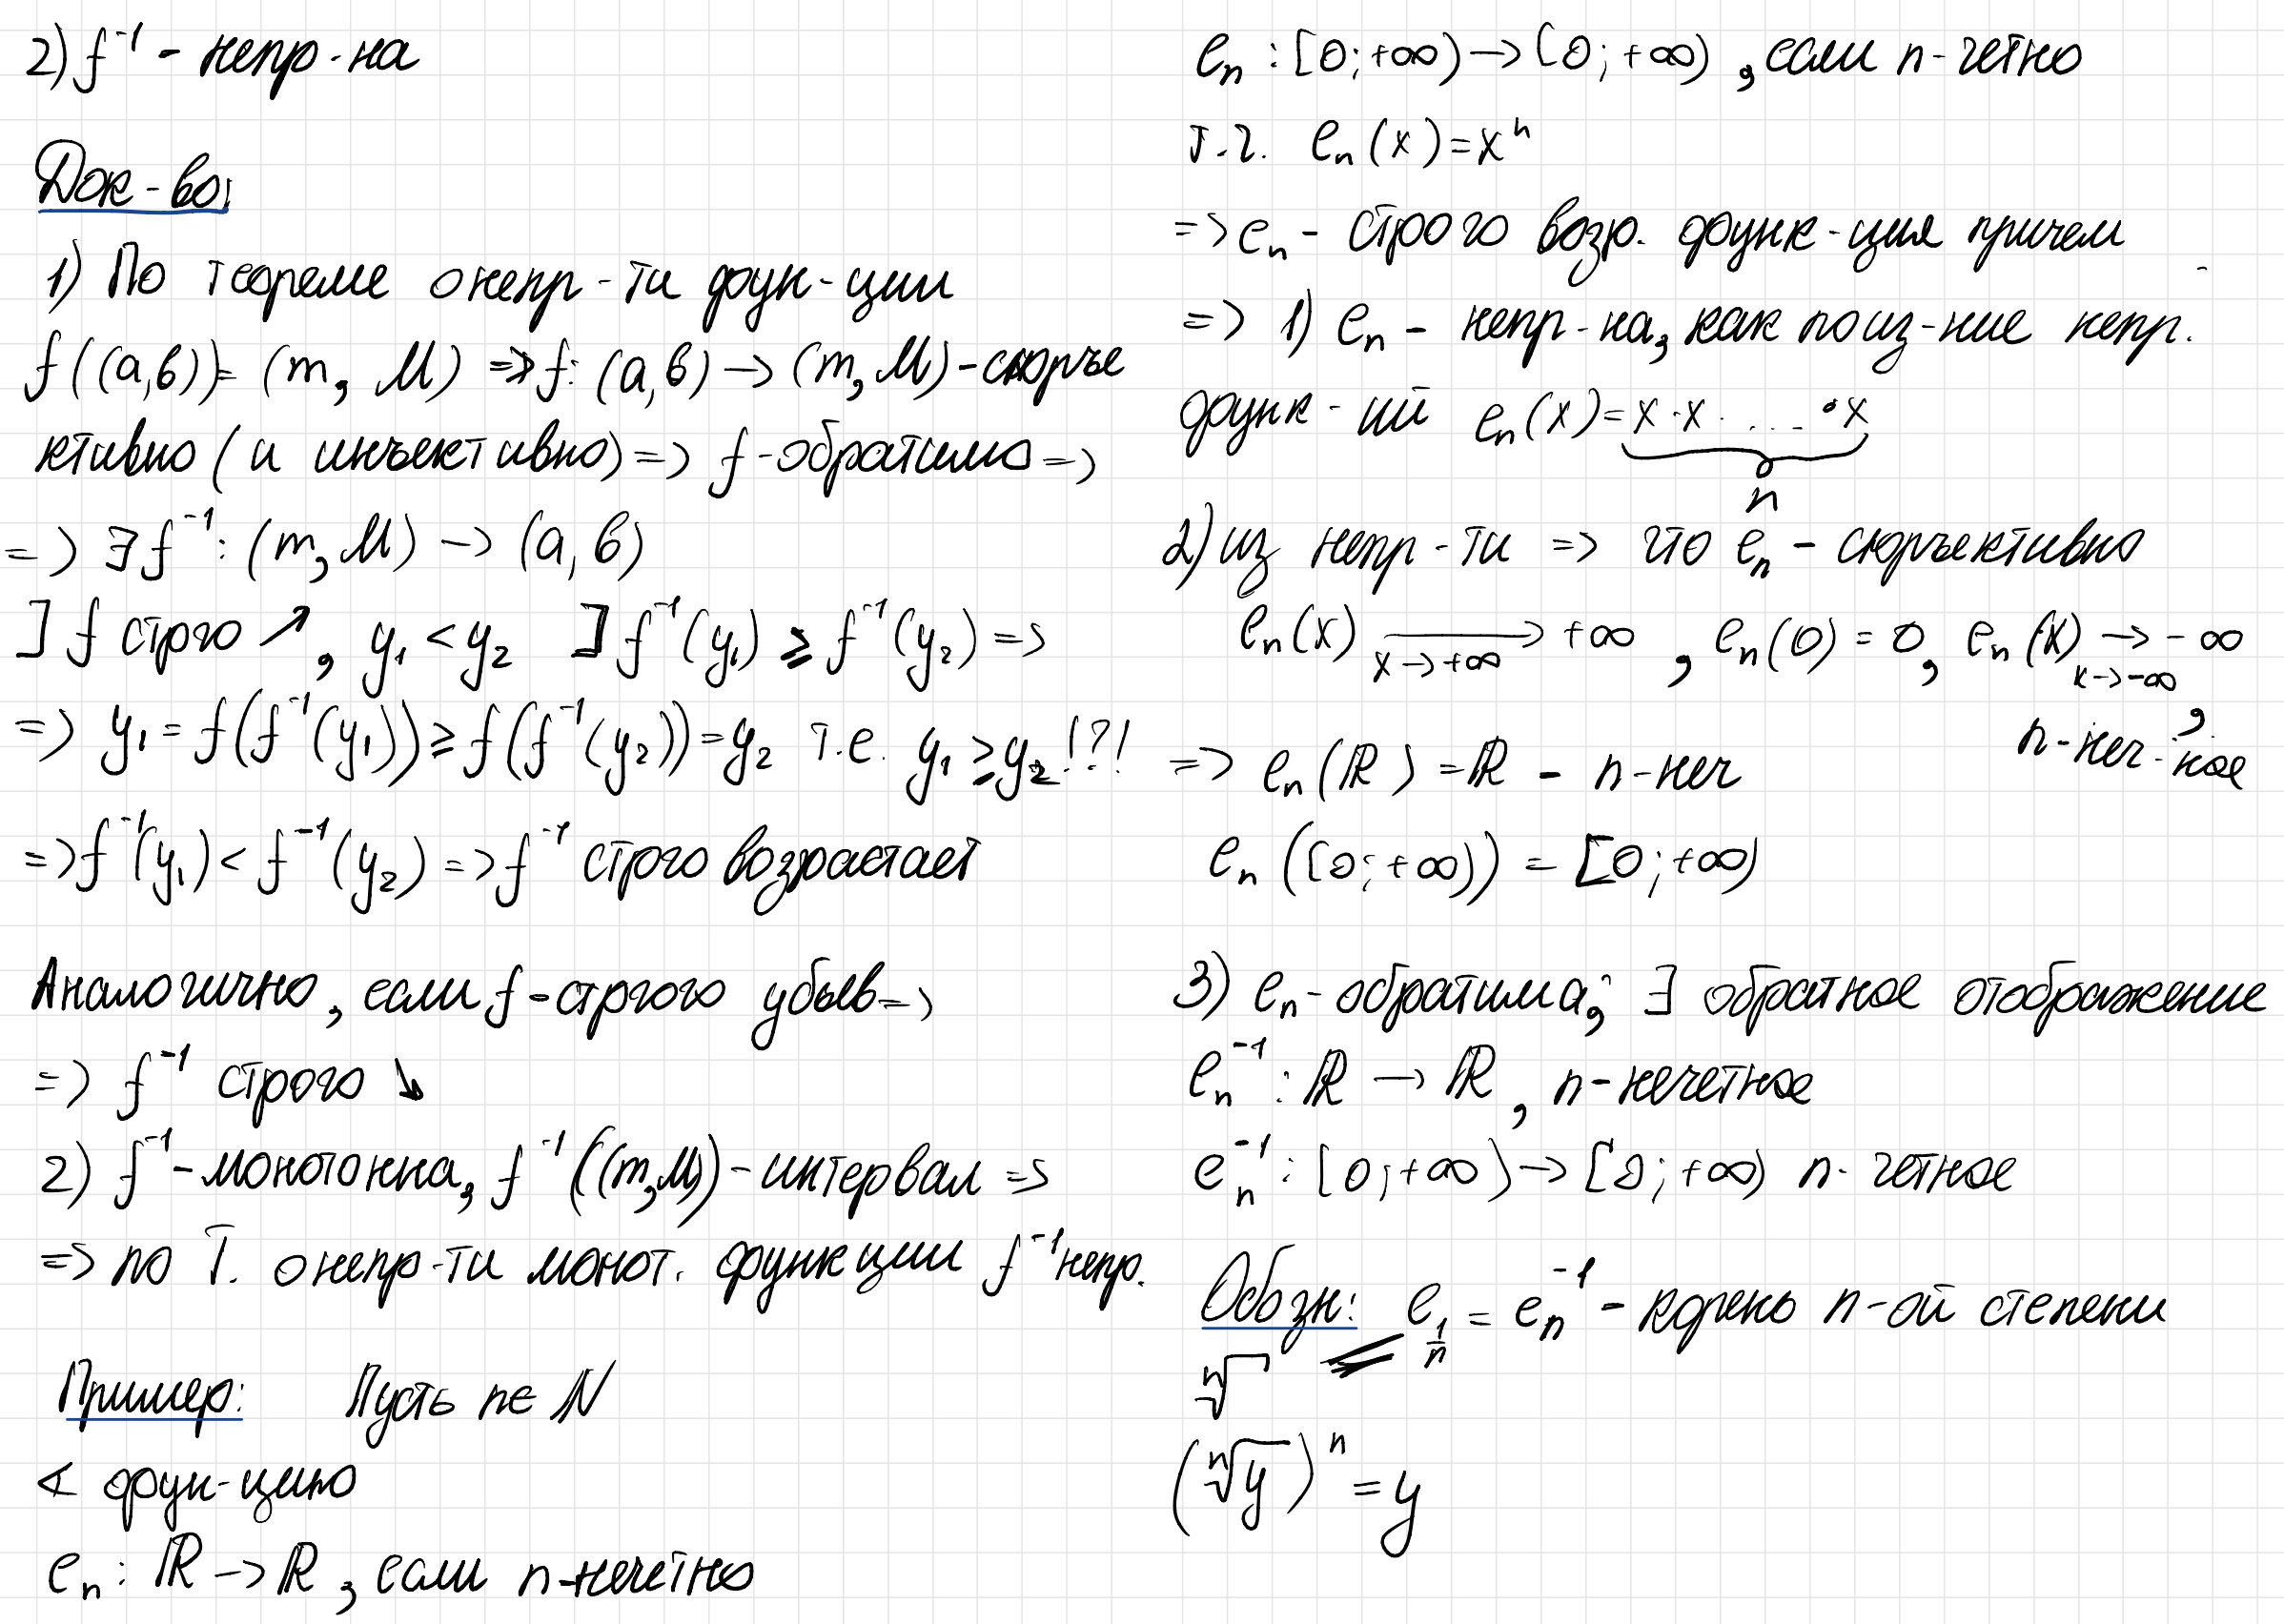 2) f⁻¹ - непр-на
Док-во:
1) По теореме о непр-ти фун-ции
f((a,b)) = (m, M) => f: (a,b) → (m, M) - сюръе
ктивно (и инъективно) => f - обратимо =>
=> ∃ f⁻¹: (m, M) → (a, b)
] f строго ↗, y₁ < y₂ ] f⁻¹(y₁) ⩾ f⁻¹(y₂) =>
=> y₁ = f(f⁻¹(y₁)) ⩾ f(f⁻¹(y₂)) = y₂ т.е. y₁ ⩾ y₂ !?!
=> f⁻¹(y₁) < f⁻¹(y₂) => f⁻¹ строго возрастает
Аналогично, если f - строго убыв =>
=> f⁻¹ строго ↘
2) f⁻¹ - монотонна, f⁻¹((m,M)) - интервал =>
=> по Т. о непр-ти монот. функции f⁻¹ непр.
Пример: Пусть n ∈ N
∢ фун-цию
eₙ: ℝ → ℝ, если n-нечётно
eₙ: [0; +∞) → [0; +∞), если n - четно
т.ч. eₙ(x) = xⁿ
=> eₙ - строго возр. функ-ция причем
=> 1) eₙ - непр-на, как поиз-ние непр.
функ-ий eₙ(x) = x · x · .... · x
n
2) из непр-ти => что eₙ - сюръективно
eₙ(x) → +∞, eₙ(0) = 0, eₙ(x) → -∞
x → +∞ x → -∞
, n-неч-ное
=> eₙ(ℝ) = ℝ - n-неч
eₙ([0; +∞)) = [0; +∞)
3) eₙ - обратима; ∃ обратное отображение
eₙ⁻¹: ℝ → ℝ, n-нечетное
eₙ⁻¹: [0; +∞) → [0; +∞) n- четное
Обозн: e_{1/n} = eₙ⁻¹ - корень n-ой степени
ⁿ√
(ⁿ√y)ⁿ = y